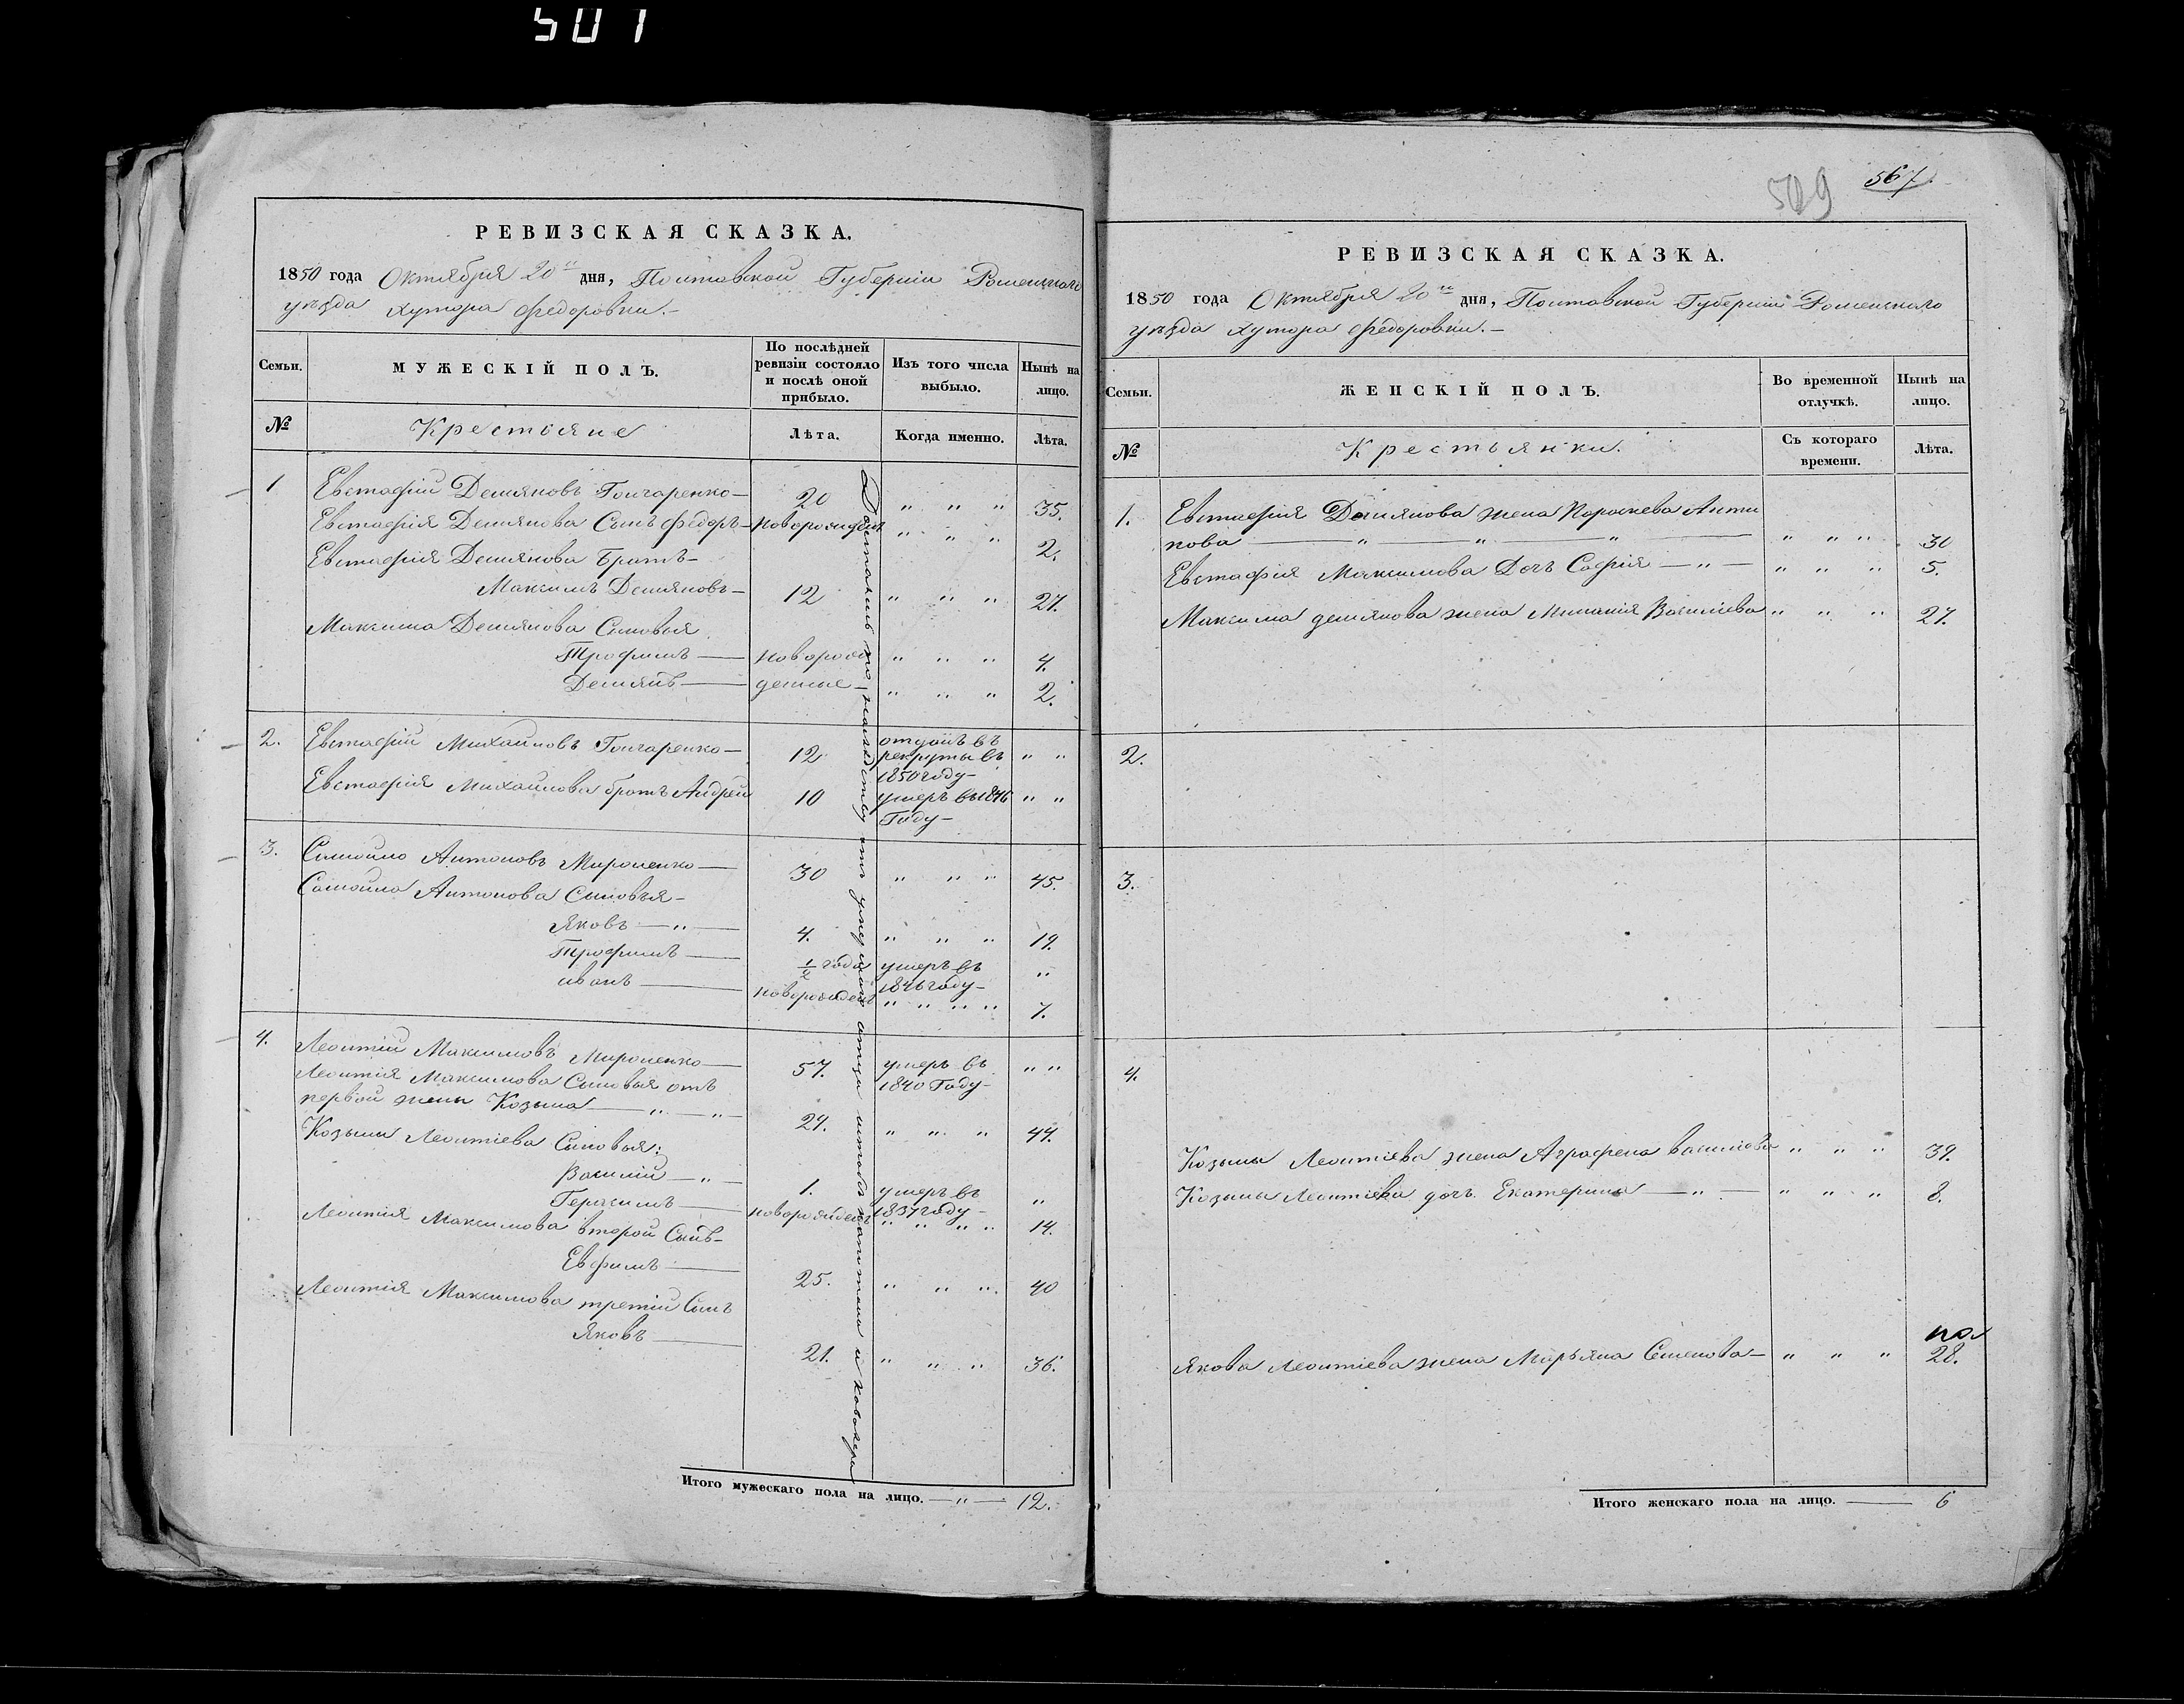 501
РЕВИЗСКАЯ СКАЗКА.
1850 года Октября 20го дня, Полтавской Губерніи Роменскаго
уѣзда хутора Федоровки.–
Семьи. МУЖЕСКІЙ ПОЛЪ. По послѣдней ревизіи состояло и послѣ оной прибыло. Изъ того числа выбыло. Нынѣ на лицо.
№ Крестьяне Лѣта. Когда именно. Лѣта.
1 Евстафій Демяновъ Гончаренко — 20 " " " 35.
Евстафія Демянова Сынъ Федоръ — новорожден " " " 2.
Евстафія Демянова Братъ —
Максимъ Демяновъ — 12 " " " 27.
Максима Демянова Сыновья
Трофимъ — новорож " " " 4.
Демянъ — денные — " " " 2.
2. Евстафій Михайловъ Гончаренко — 12 отданъ въ рекруты въ 1850 году — " "
Евстафія Михайлова братъ Андрей 10 умеръ въ 1846 Году — " "
3. Самойло Антоновъ Мироненко — 30 " " " 45.
Самойла Антонова Сыновья —
Яковъ — " — 4. " " " 19.
Трофимъ — ½ года умеръ въ 1846 году — "
иванъ — новорожден " " " " 7.
4. Леонтій Максимовъ Мироненко — 57. умеръ въ 1840 Году — " "
Леонтія Максимова Сыновья отъ
первой жены Козьма — " — " — 29. " " " 44.
Козьмы Леонтіева Сыновья:
Василій — " — 1. умеръ въ 1837 году — "
Герасимъ — новорожден " " " " 14.
Леонтія Максимова второй Сынъ —
Евфимъ — 25. " " " 40
Леонтія Максимова третій Сынъ
Яковъ — 21. " " " 36.
Достались по наследству отъ умершаго отца штабъ капитана и кавалера
Итого мужескаго пола на лицо. — " — 12.
509 567.
РЕВИЗСКАЯ СКАЗКА.
1850 года Октября 20го дня, Полтавской Губерніи Роменскаго
уѣзда хутора Федоровки.–
Семьи. ЖЕНСКІЙ ПОЛЪ. Во временной отлучкѣ. Нынѣ на лицо.
№ Крестьянки. Съ котораго времени. Лѣта.
1. Евстафія Демянова жена Пороскева Анти
пова — " — " — " — " " " 30
Евстафія Максимова Дочъ Софія — " — " " " 5.
Максима демянова жена Миланія Василіева " " " 27.
2.
3.
4.
Козьмы Леонтіева жена Аграфена василіева " " " 39.
Козьмы Леонтіева дочъ Екатерина — " — " " " 8.
Якова Леонтіева жена Марьяна Семенова — " " " 28.
Итого женскаго пола на лицо. — 6